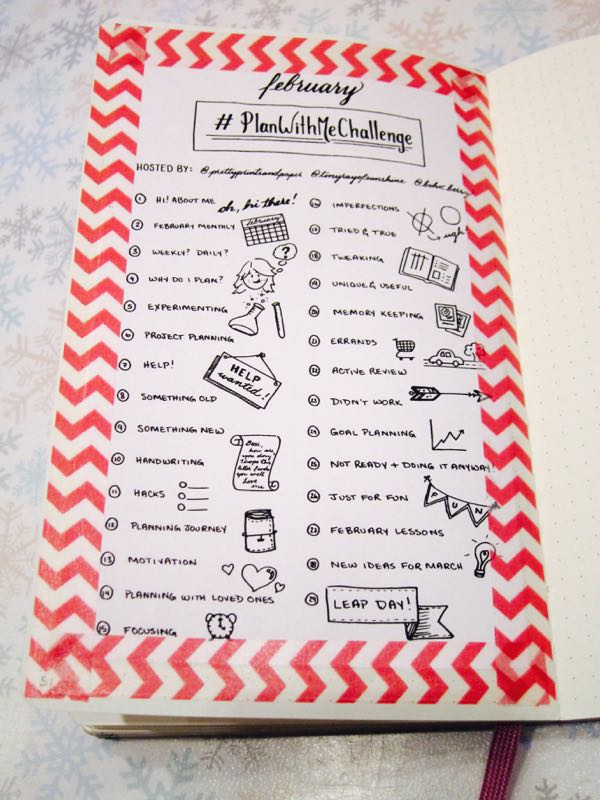 february
# PlanWithMeChallenge
HOSTED BY: @prettyprintsandpaper @tinyrayofsunshine @boho.berry
1 HI! ABOUT ME oh, hi there!
2 FEBRUARY MONTHLY february
3 WEEKLY? DAILY? ?
4 WHY DO I PLAN?
5 EXPERIMENTING
6 PROJECT PLANNING
7 HELP! HELP wanted!
8 SOMETHING OLD
9 SOMETHING NEW
10 HANDWRITING
11 HACKS
12 PLANNING JOURNEY
13 MOTIVATION
14 PLANNING WITH LOVED ONES
15 FOCUSING
16 IMPERFECTIONS
17 TRIED & TRUE ugh!
18 TWEAKING
19 UNIQUE & USEFUL
20 MEMORY KEEPING
21 ERRANDS
22 ACTIVE REVIEW
23 DIDN'T WORK
24 GOAL PLANNING
25 NOT READY + DOING IT ANYWAY!
26 JUST FOR FUN FUN
27 FEBRUARY LESSONS
28 NEW IDEAS FOR MARCH
29 LEAP DAY!